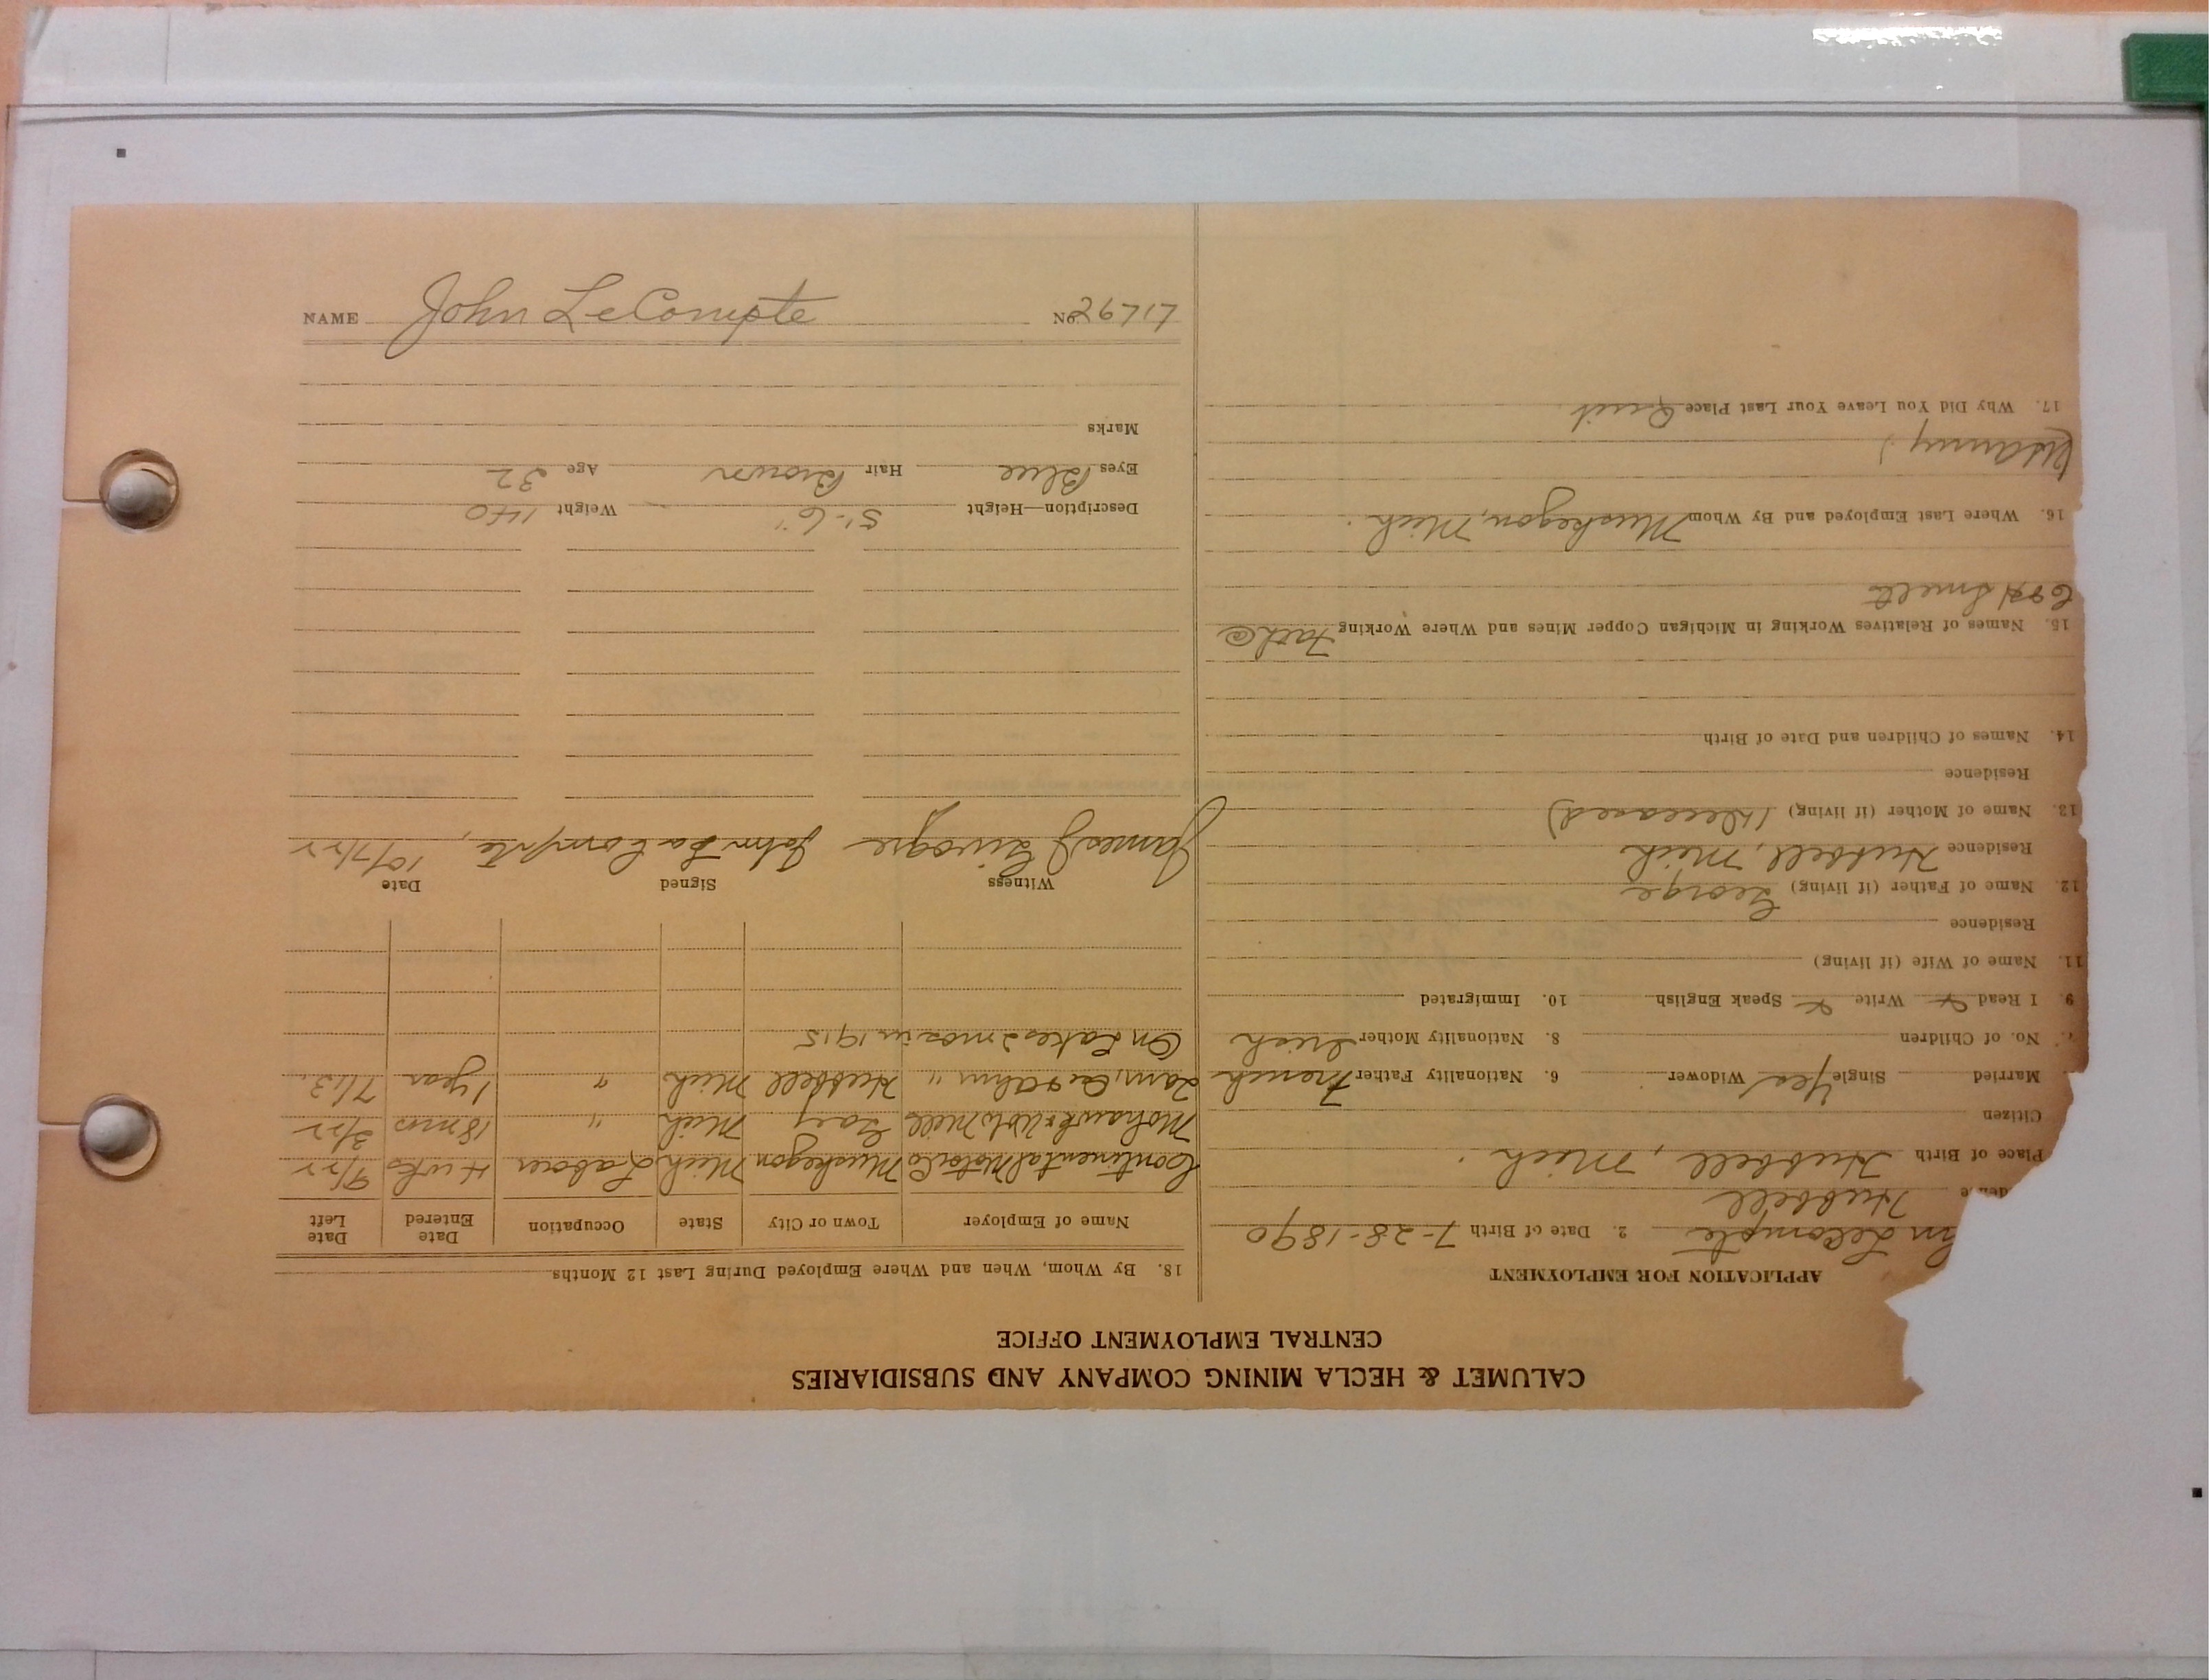 CALUMET & HECLA MINING COMPANY AND SUBSIDIARIES
CENTRAL EMPLOYMENT OFFICE
APPLICATION FOR EMPLOYMENT
hn LeCompte 2. Date of Birth 7-28-1890
dence Hubbell
Place of Birth Hubbell, Mich.
Citizen
Married Single Yes Widower 6. Nationality Father French
No. of Children 8. Nationality Mother Irish
9. I Read x Write x Speak English 10. Immigrated
11. Name of Wife (if living)
Residence
12. Name of Father (if living) George
Residence Hubbell, Mich
13. Name of Mother (if living) (Deceased)
Residence
14. Names of Children and Date of Birth
15. Names of Relatives Working in Michigan Copper Mines and Where Working Fath @
C&H Smelt
16. Where Last Employed and By Whom Muskegon, Mich.
17. Why Did You Leave Your Last Place Quit.
18. By Whom, When and Where Employed During Last 12 Months
Name of Employer Town or City State Occupation Date Entered Date Left
Continental Motor Co Muskegon Mich Labour 4 wks 9/22
Mohawk & Wol Mill Gay Mich " 18 mos 3/22
" Hubbell Mich " 1 year 7/13.
On Lakes 2 mos in 1915
Witness Signed Date
James J John La Compte, 10/7/22
Description—Height 5'-6" Weight 140
Eyes Blue Hair Brown Age 32
Marks
NAME John LeCompte No. 29717